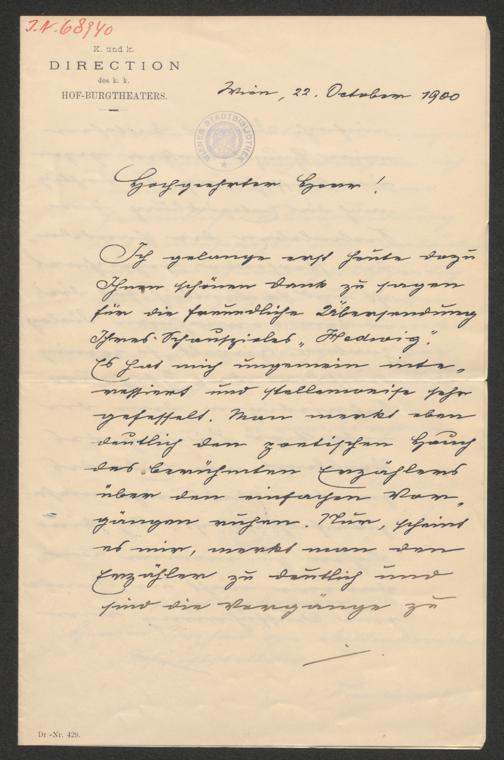 J.N. 68940
K. und k.
DIRECTION
des k. k.
HOF-BURGTHEATERS.
Wien, 22. October 1900
WIENER STADTBIBLIOTHEK
Hochgeehrter Herr!
Ich gelange erst heute dazu
Ihnen schönen Dank zu sagen
für die freundliche Übersendung
Ihres Schauspieles „Hedwig“.
Es hat mich ungemein inte-
ressiert und stellenweise sehr
gefesselt. Man merkt eben
deutlich den poetischen Hauch
des berühmten Erzählers
über den einfachen Vor-
gängen ruhen. Nur, scheint
es mir, merkt man den
Erzähler zu deutlich und
sind die Vorgänge zu
Dr.-Nr. 429.